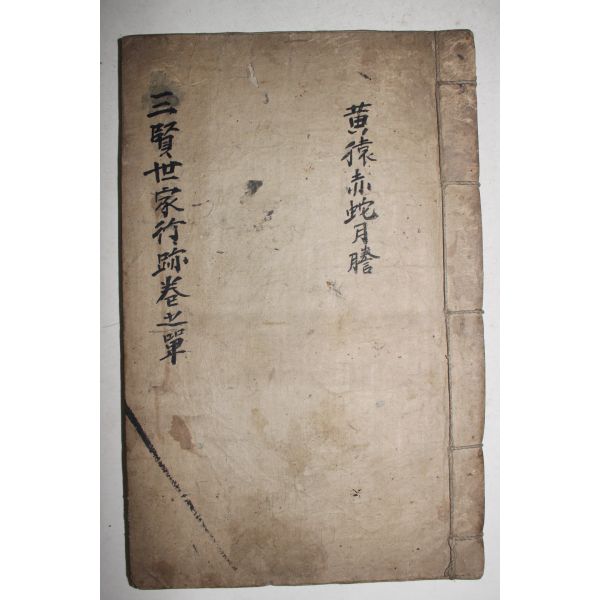 黄猿赤蛇月謄
三賢世家行跡卷之單